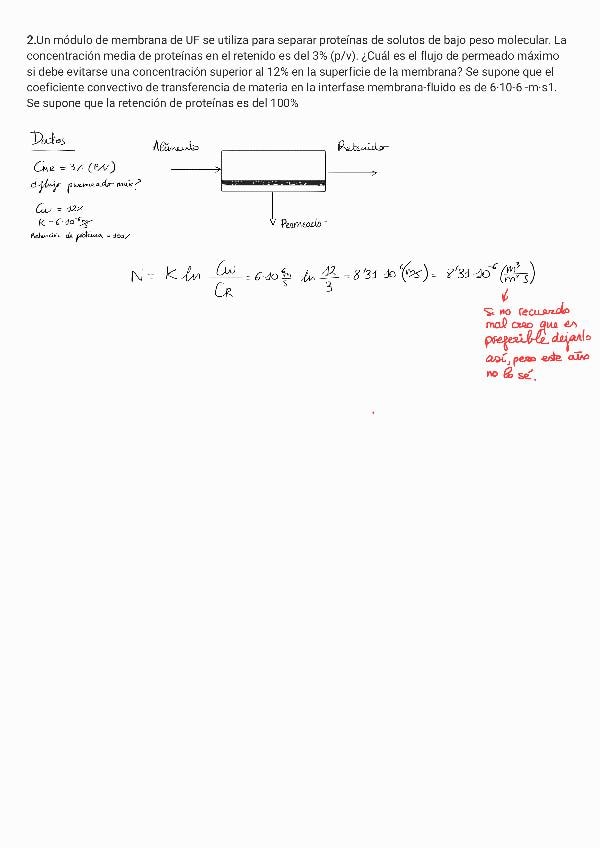 2.Un módulo de membrana de UF se utiliza para separar proteínas de solutos de bajo peso molecular. La
concentración media de proteínas en el retenido es del 3% (p/v). ¿Cuál es el flujo de permeado máximo
si debe evitarse una concentración superior al 12% en la superficie de la membrana? Se supone que el
coeficiente convectivo de transferencia de materia en la interfase membrana-fluido es de 6·10-6 -m·s1.
Se supone que la retención de proteínas es del 100%
Datos
Alimento
Retenido
CMR = 3% (P/V)
¿flujo permeado máx?
Cw = 12%
K = 6·10⁻⁶ m/s
Retención de proteína = 100%
Permeado
N = K ln Cw/CR = 6·10⁻⁶ m/s ln 12/3 = 8'31·10⁻⁶ (m/s) = 8'31·10⁻⁶ (m³/m²s)
Si no recuerdo
mal creo que es
preferible dejarlo
así, pero este año
no lo sé.